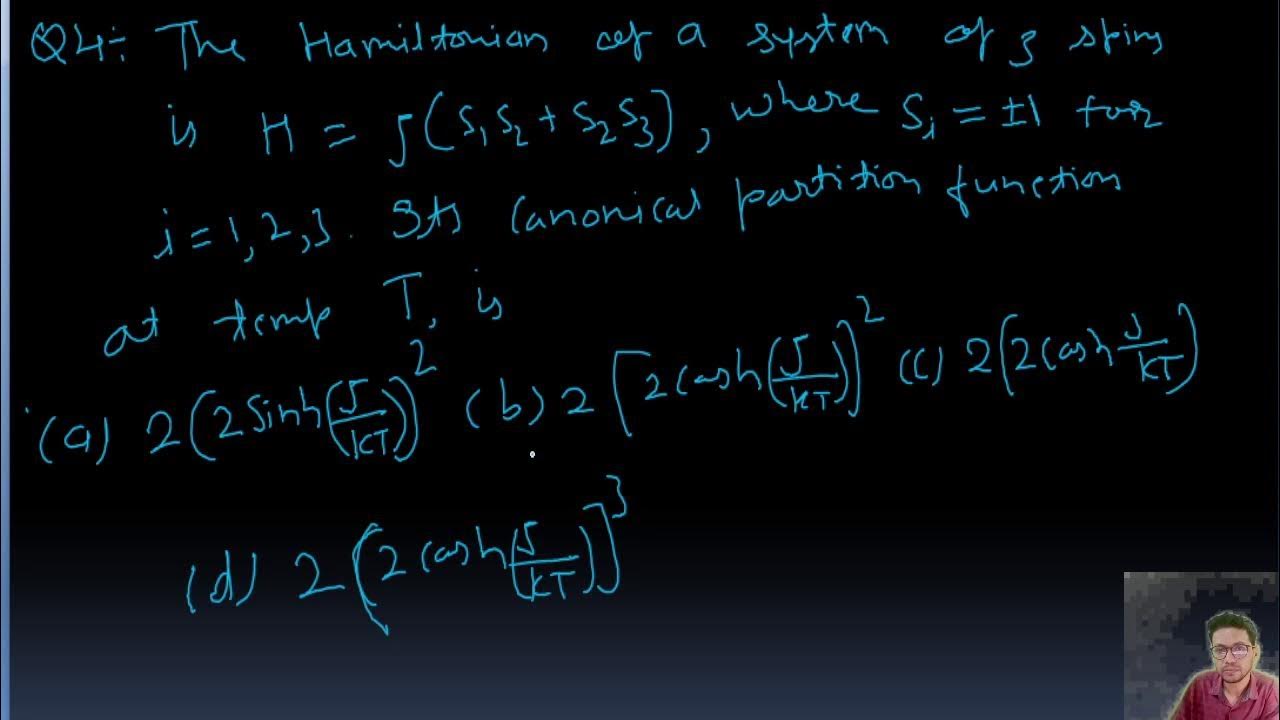 Q4÷ The Hamiltonian of a system of 3 spins
is H = J(S₁S₂ + S₂S₃), where Sᵢ = ±1 for
i = 1, 2, 3. Its Canonical partition function
at temp T, is
(a) 2(2sinh(J/KT))² (b) 2[2cosh(J/KT)]² (c) 2(2cosh J/KT)
(d) 2(2cosh(J/KT)]³